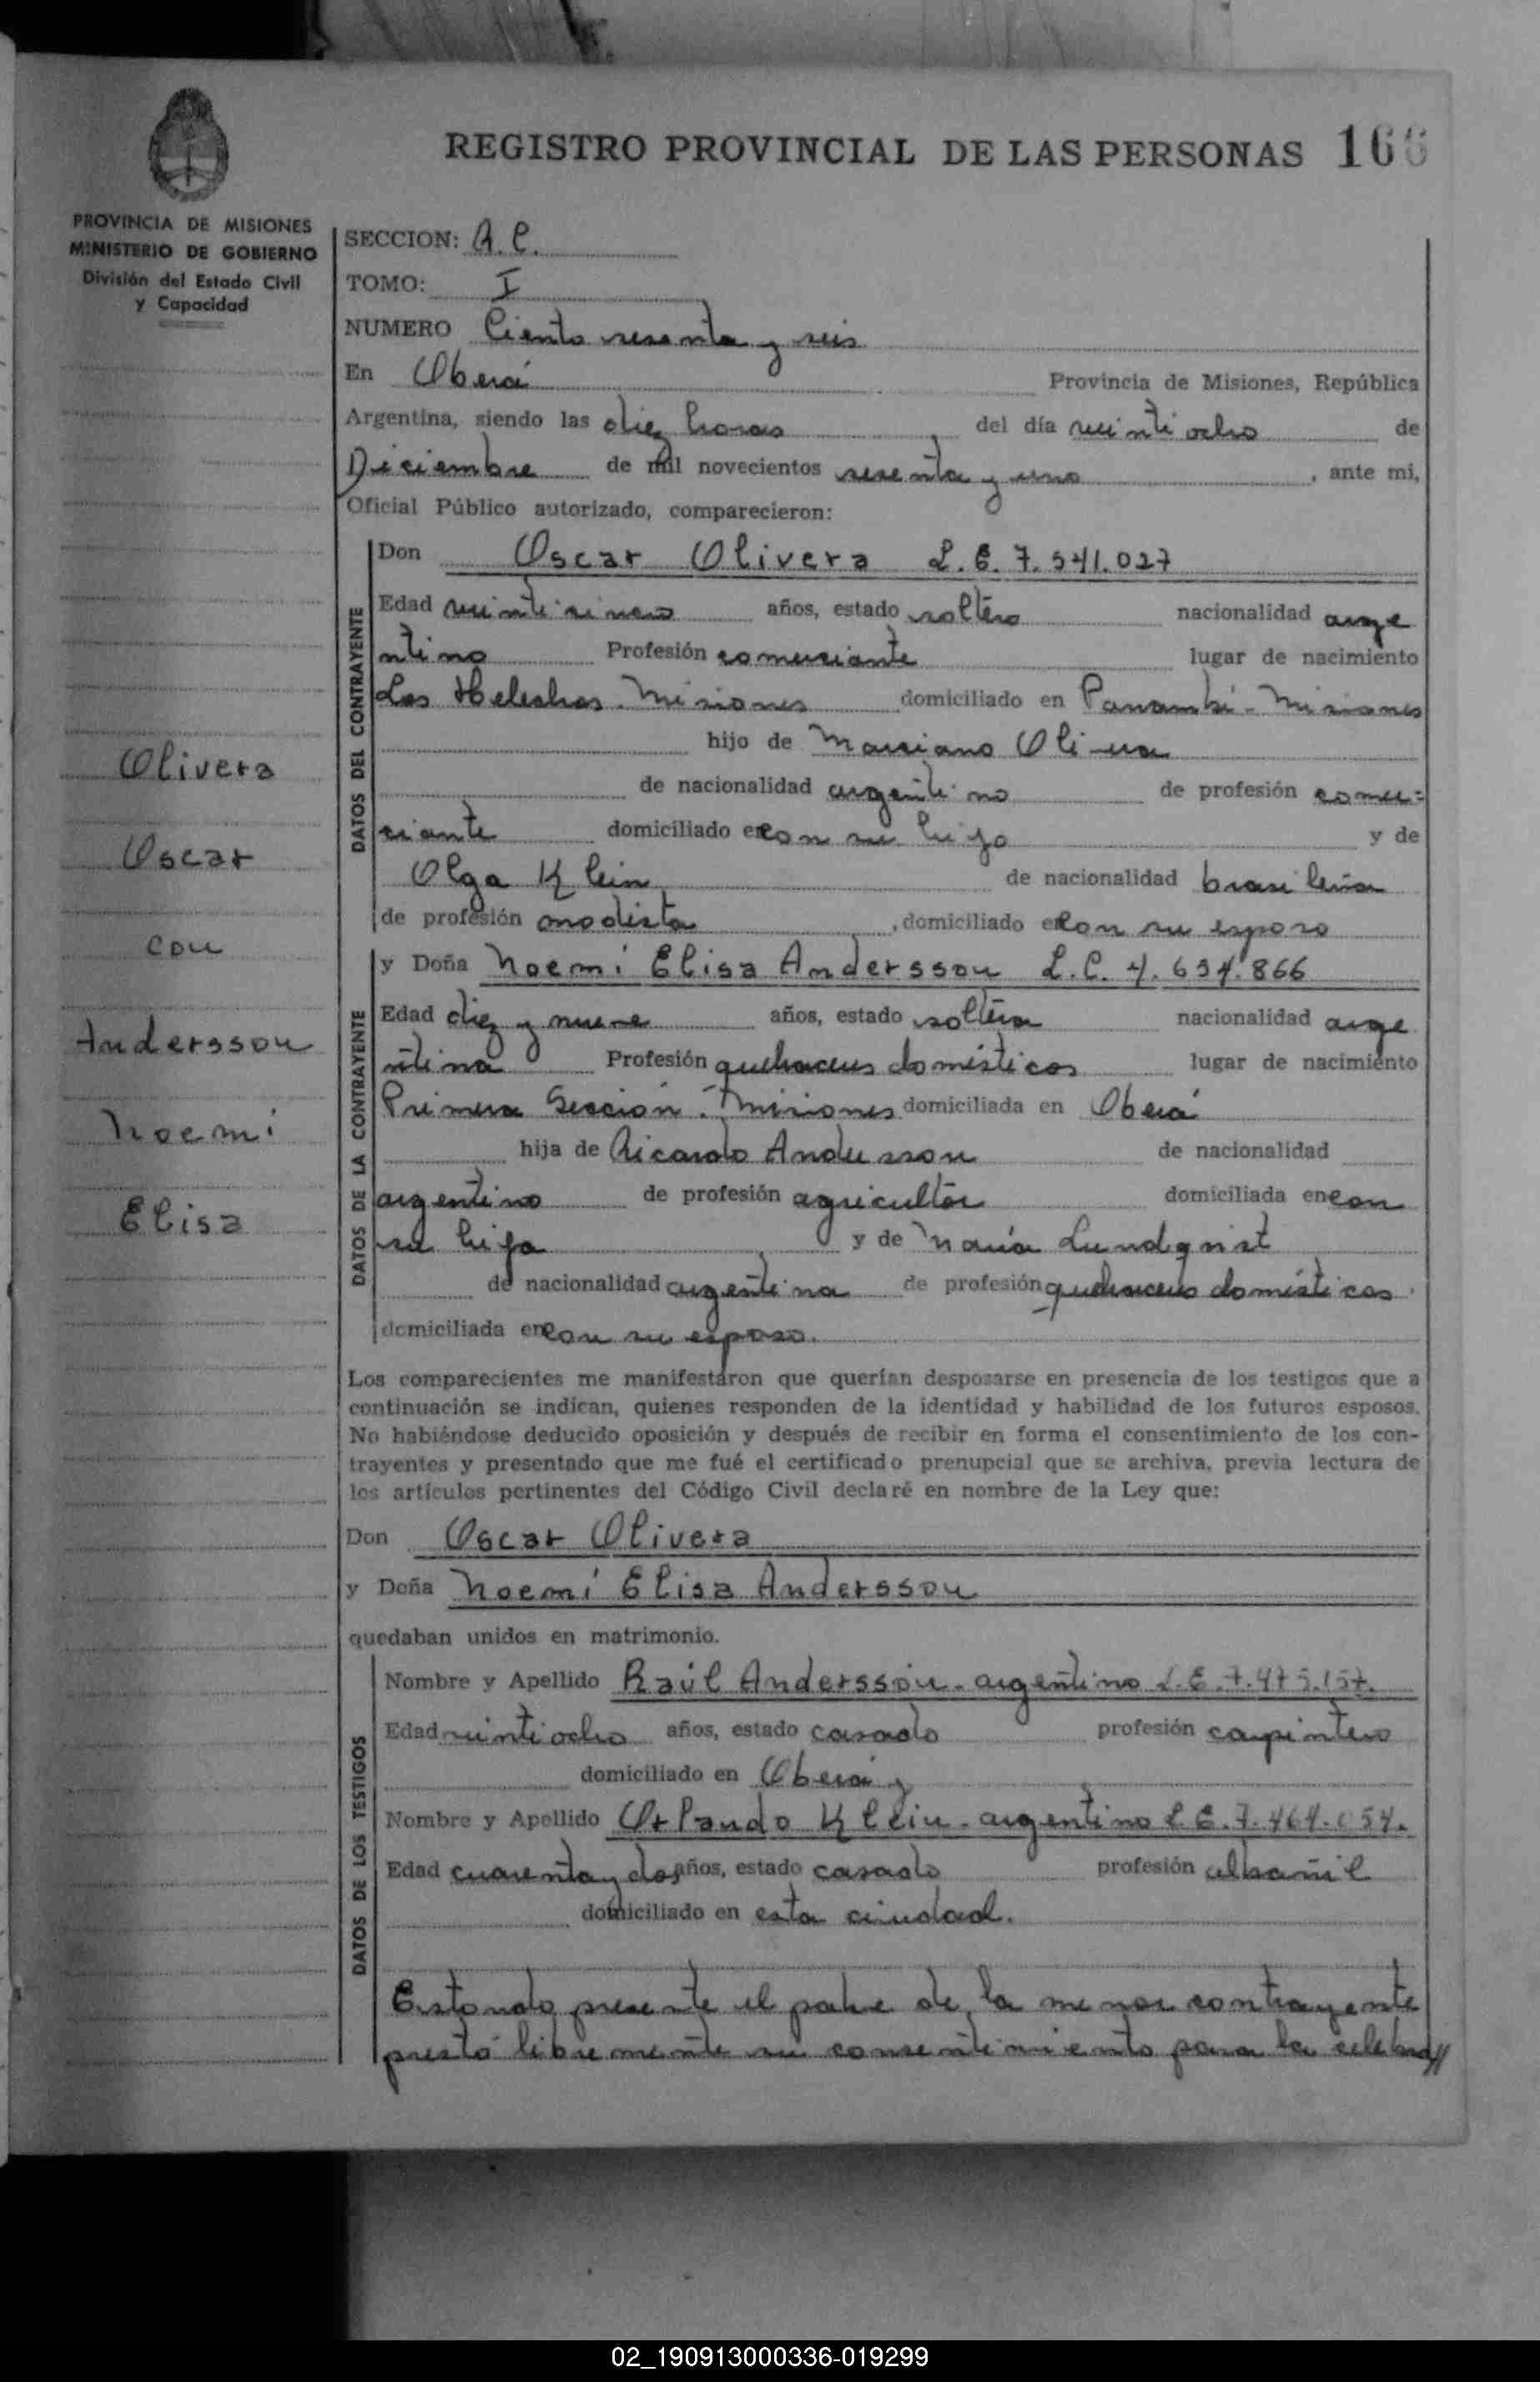 REGISTRO PROVINCIAL DE LAS PERSONAS 166
PROVINCIA DE MISIONES
MINISTERIO DE GOBIERNO
División del Estado Civil
y Capacidad
SECCION: A.C.
TOMO: I
NUMERO Ciento sesenta y seis
En Oberá Provincia de Misiones, República
Argentina, siendo las diez horas del día veintiocho de
Diciembre de mil novecientos sesenta y uno, ante mi,
Oficial Público autorizado, comparecieron:
Don Oscar Olivera L.E. 7.541.027
DATOS DEL CONTRAYENTE
Edad veinticinco años, estado soltero nacionalidad arge
ntino Profesión comerciante lugar de nacimiento
Los Helechos. Misiones domiciliado en Panambí - Misiones
hijo de Marciano Olivera
de nacionalidad argentino de profesión comer=
ciante domiciliado en con su hijo y de
Olga Klein de nacionalidad brasileña
de profesión modista, domiciliado en con su esposo
Olivera
Oscar
con
Andersson
Noemí
Elisa
y Doña Noemí Elisa Andersson L.C. 4.634.866
DATOS DE LA CONTRAYENTE
Edad diez y nueve años, estado soltera nacionalidad arge
ntina Profesión quehaceres domésticos lugar de nacimiento
Primera Sección. Misiones domiciliada en Oberá
hija de Ricardo Andersson de nacionalidad
argentino de profesión agricultor domiciliada en con
su hija y de María Lundqvist
de nacionalidad argentina de profesión quehaceres domésticos
domiciliada en con su esposo.
Los comparecientes me manifestaron que querían desposarse en presencia de los testigos que a
continuación se indican, quienes responden de la identidad y habilidad de los futuros esposos.
No habiéndose deducido oposición y después de recibir en forma el consentimiento de los con-
trayentes y presentado que me fué el certificado prenupcial que se archiva, previa lectura de
los artículos pertinentes del Código Civil declaré en nombre de la Ley que:
Don Oscar Olivera
y Doña Noemí Elisa Andersson
quedaban unidos en matrimonio.
DATOS DE LOS TESTIGOS
Nombre y Apellido Raúl Andersson. argentino L.E. 7.475.157.
Edad veintiocho años, estado casado profesión carpintero
domiciliado en Oberá y
Nombre y Apellido Orlando Klein. argentino L.E. 7.464.054.
Edad cuarenta y dos años, estado casado profesión albañil
domiciliado en esta ciudad.
Estando presente el padre de la menor contrayente
prestó libremente su consentimiento para la celebra//
02_190913000336-019299